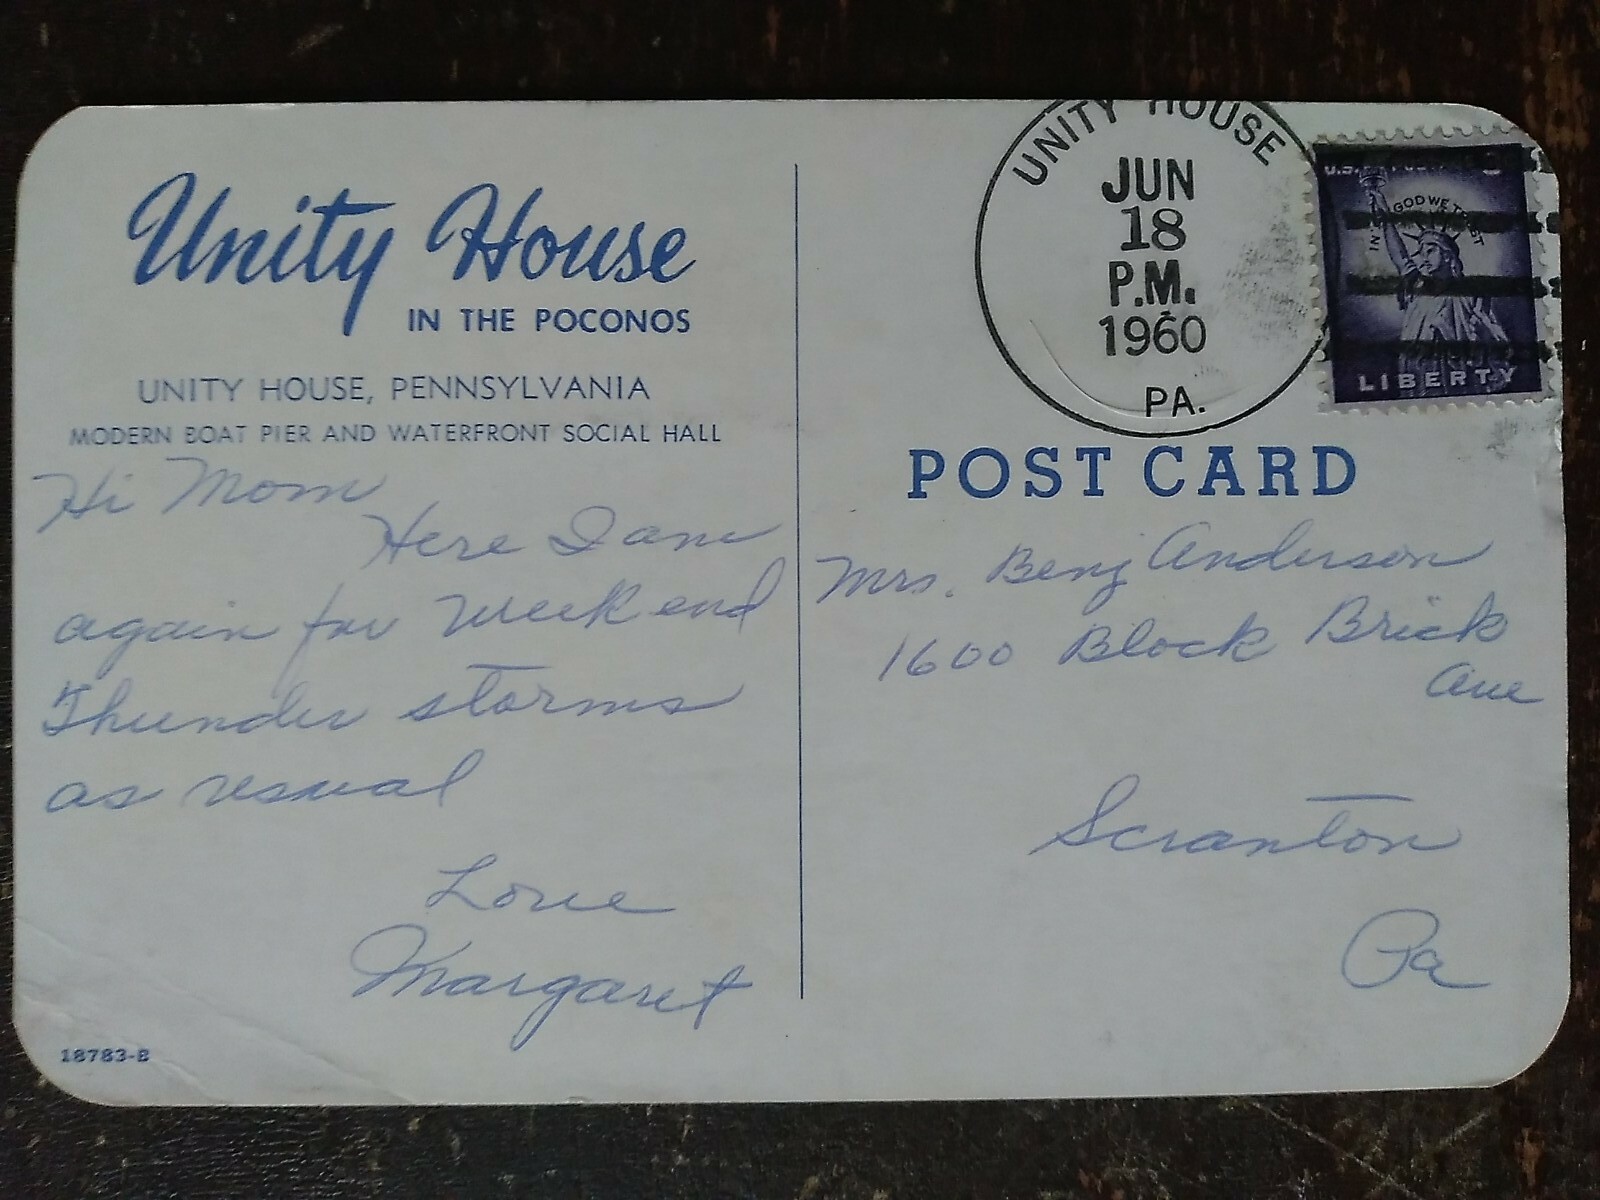 Unity House
IN THE POCONOS
UNITY HOUSE, PENNSYLVANIA
MODERN BOAT PIER AND WATERFRONT SOCIAL HALL
Hi Mom
Here I am
again for week end
Thunder storms
as usual
Love
Margaret
18783-B
UNITY HOUSE
JUN
18
P.M.
1960
PA.
IN GOD WE TRUST
LIBERTY
POST CARD
Mrs. Benj Anderson
1600 Block Brick
Ave
Scranton
Pa